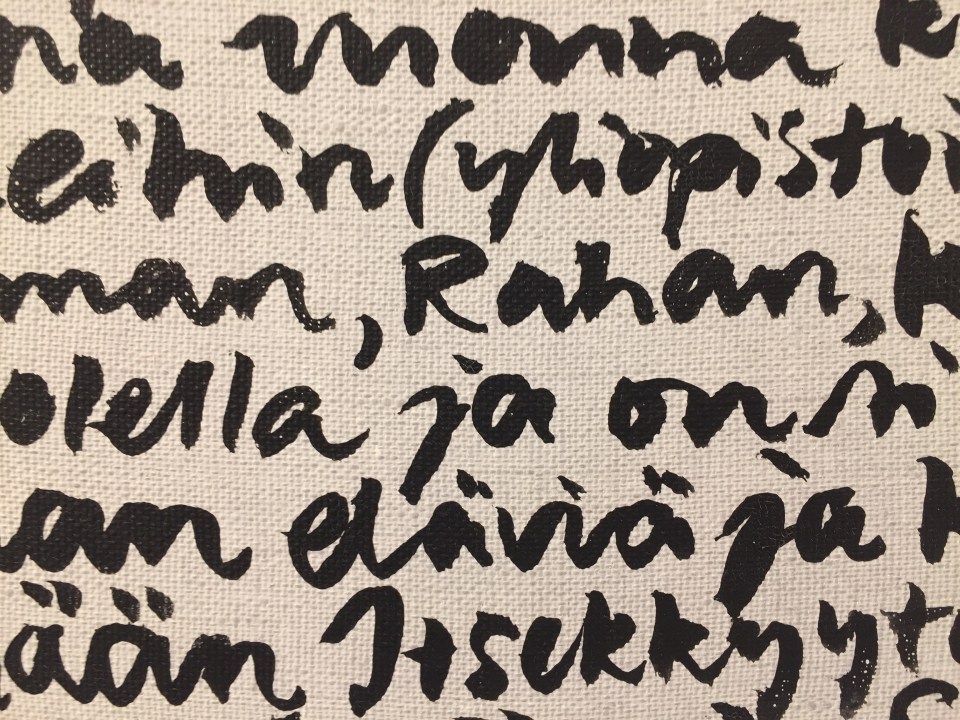 nä vuonna k
eihin (yliopistoi
man, Rahan, k
olella ja on si
an eläviä ja k
ään Itsekkyyte